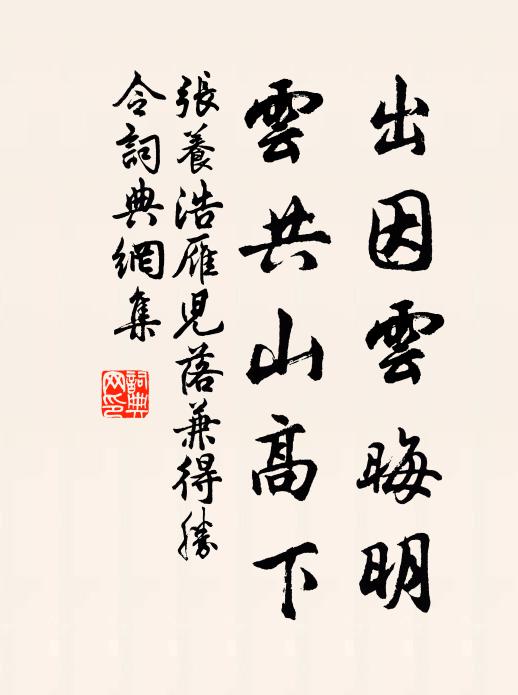 出因雲晦明
雲共山高下
張養浩雁兒落兼得勝
令詞典網集
詞典網印